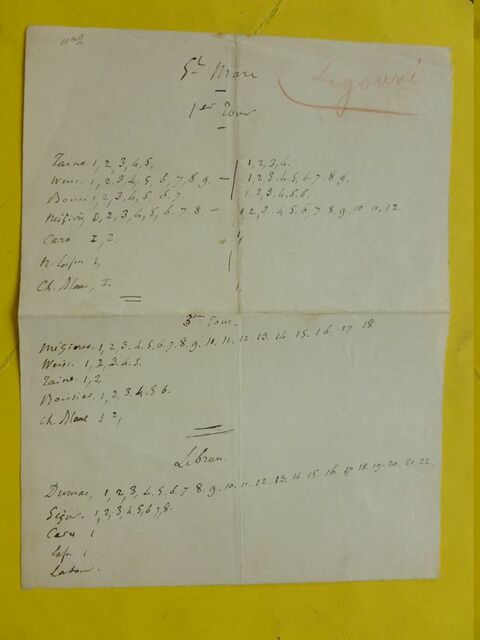 Legouvé
St Marc
1er Tour
Taine 1, 2, 3, 4, 5, 1, 2, 3, 4.
Weiss. 1, 2, 3, 4, 5, 6, 7, 8, 9. — 1, 2, 3. 4, 5, 6, 7. 8. 9.
Boissier 1, 2, 3, 4, 5, 6, 7. 1, 2, 3, 4, 5. 6.
Mézières 1, 2, 3, 4, 5, 6, 7. 8. — 1 2, 3. 4. 5. 6. 7. 8. 9. 10. 11. 12
Caro I, 2. 1,
1,
Ch. Blanc, I. 1,
3em Tour.
Mézières. 1, 2, 3. 4. 5. 6. 7. 8. 9. 10. 11. 12. 13. 14. 15. 16. 17. 18
Weiss. 1, 2, 3. 4. 5.
Taine. 1, 2
Boissier. 1, 2, 3. 4. 5. 6.
Ch Blanc 1 2,
Lebrun.
Dumas, 1, 2, 3, 4. 5. 6. 7. 8. 9. 10. 11. 12. 13. 14. 15. 16. 17. 18. 19. 20. 21. 22.
Ségur. 1, 2, 3, 4, 5, 6 7, 8.
Caro 1
1